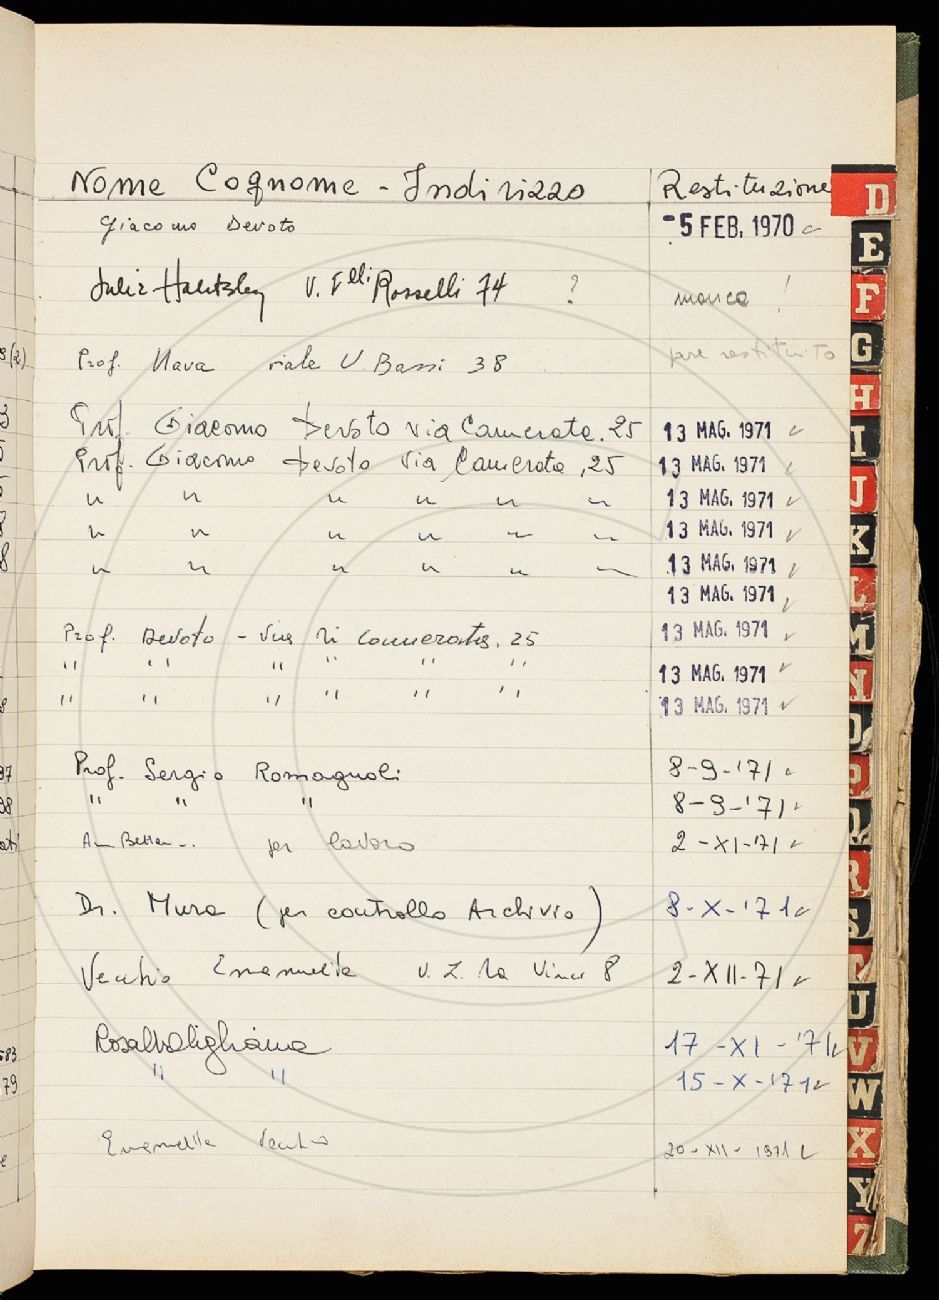 Nome Cognome - Indirizzo Restituzione
Giacomo Devoto -5 FEB. 1970
V. F.lli Rosselli 74 ? manca !
Prof. Nava viale U. Bassi 38 pare restituito
Prof. Giacomo Devoto via Camerata, 25 13 MAG. 1971
Prof. Giacomo Devoto via Camerata, 25 13 MAG. 1971
" " " " " " 13 MAG. 1971
" " " " " " 13 MAG. 1971
" " " " " " 13 MAG. 1971
13 MAG. 1971
Prof. Devoto - Via di Camerata, 25 13 MAG. 1971
" " " " " " 13 MAG. 1971
" " " " " " 13 MAG. 1971
Prof. Sergio Romagnoli 8-9-'71
" " " 8-9-'71
per lavoro 2-XI-'71
Dr. Mura (per controllo Archivio) 8-X-'71
Vecchio Emanuella V. L. Da Vinci 8 2-XII-71
17-XI-'71
" " 15-X-'71
Emanuella Vecchio 20-XII-1971
D
E
F
G
H
I
J
K
L
M
N
O
P
Q
R
S
T
U
V
W
X
Y
Z